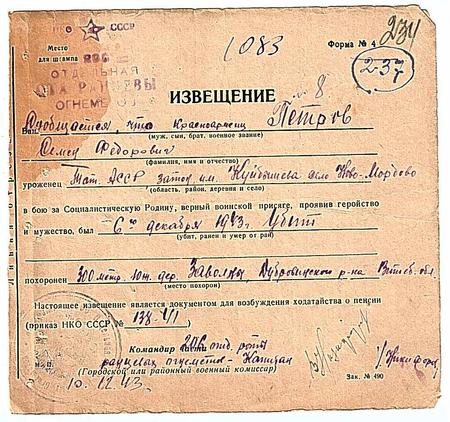 НКО СССР
Место для штампа
Форма № 4
234
1083
237
ОТДЕЛЬНАЯ
ОГНЕМЕ
№ 8
ИЗВЕЩЕНИЕ
Сообщается, что Красноармеец Петров
(муж, сын, брат, военное звание)
Семен Федорович
(фамилия, имя и отчество)
уроженец Тат. АССР затон им. Куйбышева село Ново-Мордово
(область, район, деревня и село)
в бою за Социалистическую Родину, верный воинской присяге, проявив геройство
и мужество, был 6го декабря 1943г. Убит
(убит, ранен и умер от ран)
похоронен 300 метр. юж. дер. Заволцы, Дубровинского р-на Витеб. обл.
(место похорон)
Настоящее извещение является документом для возбуждения ходатайства о пенсии
(приказ НКО СССР №
Командир части
отд. роты
ранцевых огнеметов - Капитан
(Городской или районный военный комиссар)
10.12.43.
Зак. № 490